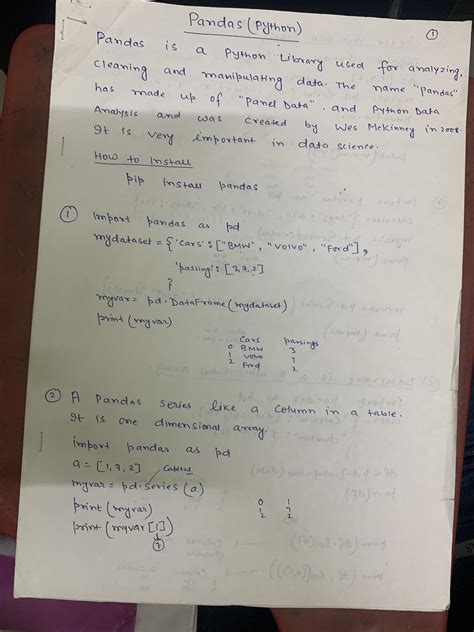 Pandas (Python)
①
Pandas is a Python Library used for analyzing,
cleaning and manipulating data. The name "Pandas"
has made up of "Panel Data". and Python Data
Analysis and was created by Wes McKinney in 2008.
It is very important in data science.
How to Install
pip install pandas
① import pandas as pd
mydataset = {'Cars': ["BMW", "Volvo", "Ford"],
'passing': [3,7,2]
}
myvar = pd.DataFrame(mydataset)
print (myvar)
Cars passings
0 BMW 3
1 Volvo 7
2 Ford 2
② A Pandas series like a column in a table.
It is one dimensional array.
import pandas as pd
a = [1,7,2]
Capital
myvar = pd.Series (a)
print (myvar)
0 1
1 7
2 2
print (myvar [1])
7